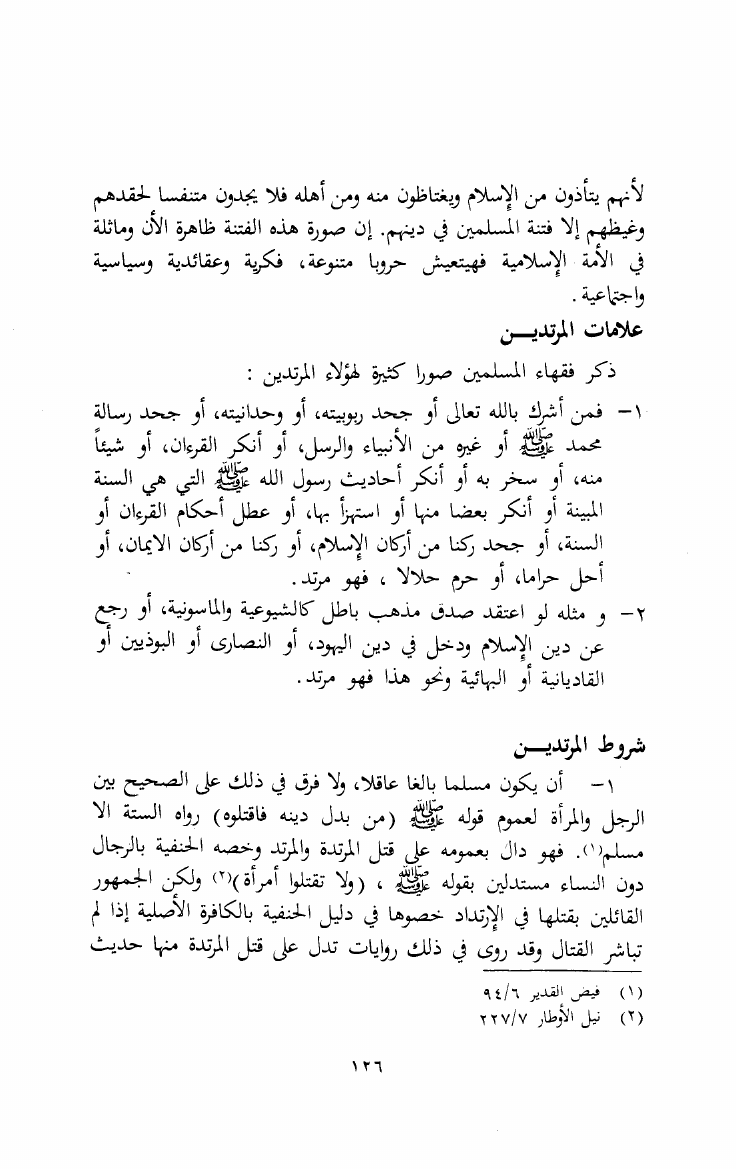 لأنهم يتأذون من الإسلام ويغتاظون منه ومن أهله فلا يجدون متنفسا لحقدهم
وغيظهم إلا فتنة المسلمين في دينهم. إن صورة هذه الفتنة ظاهرة الأن وماثلة
في الأمة الإسلامية فهيتعيش حروبا متنوعة، فكرية وعقائدية وسياسية
واجتماعية .
علامات المرتديـــن
ذكر فقهاء المسلمين صورا كثيرة لهؤلاء المرتدين :
١– فمن أشرك بالله تعالى أو جحد ربوبيته، أو وحدانيته، أو جحد رسالة
محمد ﷺ أو غيره من الأنبياء والرسل، أو أنكر القرءان، أو شيئاً
منه، أو سخر به أو أنكر أحاديث رسول الله ﷺ التي هي السنة
المبينة أو أنكر بعضا منها أو استهزأ بها، أو عطل أحكام القرءان أو
السنة، أو جحد ركنا من أركان الإسلام، أو ركنا من أركان الايمان، أو
أحل حراما، أو حرم حلالا ، فهو مرتد.
٢– و مثله لو اعتقد صدق مذهب باطل كالشيوعية والماسونية، أو رجع
عن دين الإسلام ودخل في دين اليهود، أو النصارى أو البوذيين أو
القاديانية أو البهائية ونحو هذا فهو مرتد.
شروط المرتديـــن
١– أن يكون مسلما بالغا عاقلا، ولا فرق في ذلك على الصحيح بين
الرجل والمرأة لعموم قوله ﷺ (من بدل دينه فاقتلوه) رواه الستة الا
مسلم(١). فهو دال بعمومه على قتل المرتدة والمرتد وخصه الحنفية بالرجال
دون النساء مستدلين بقوله ﷺ ، (ولا تقتلوا أمرأة)(٢) ولكن الجمهور
القائلين بقتلها في الإرتداد خصوها في دليل الحنفية بالكافرة الأصلية إذا لم
تباشر القتال وقد روى في ذلك روايات تدل على قتل المرتدة منها حديث
(١) فيض القدير ٩٤/٦
(٢) نيل الأوطار ٢٢٧/٧
١٢٦